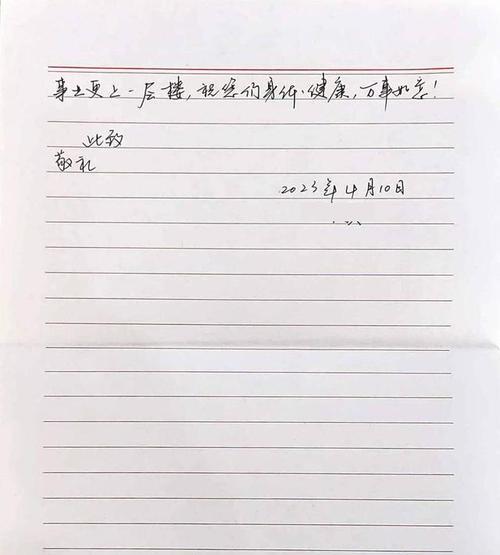 事上更上一层楼，祝您们身体健康，万事如意！
此致
敬礼
2023年4月10日